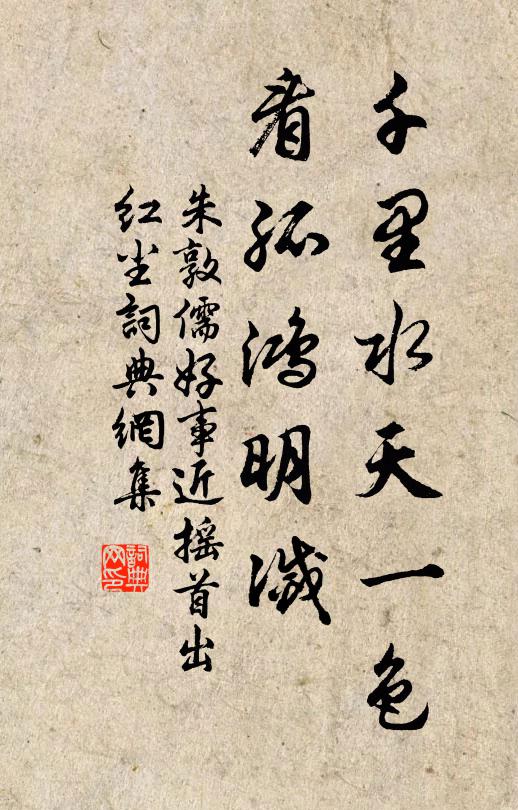 千里水天一色
看孤鴻明滅
朱敦儒好事近摇首出
红尘詞典網集
詞典
网印